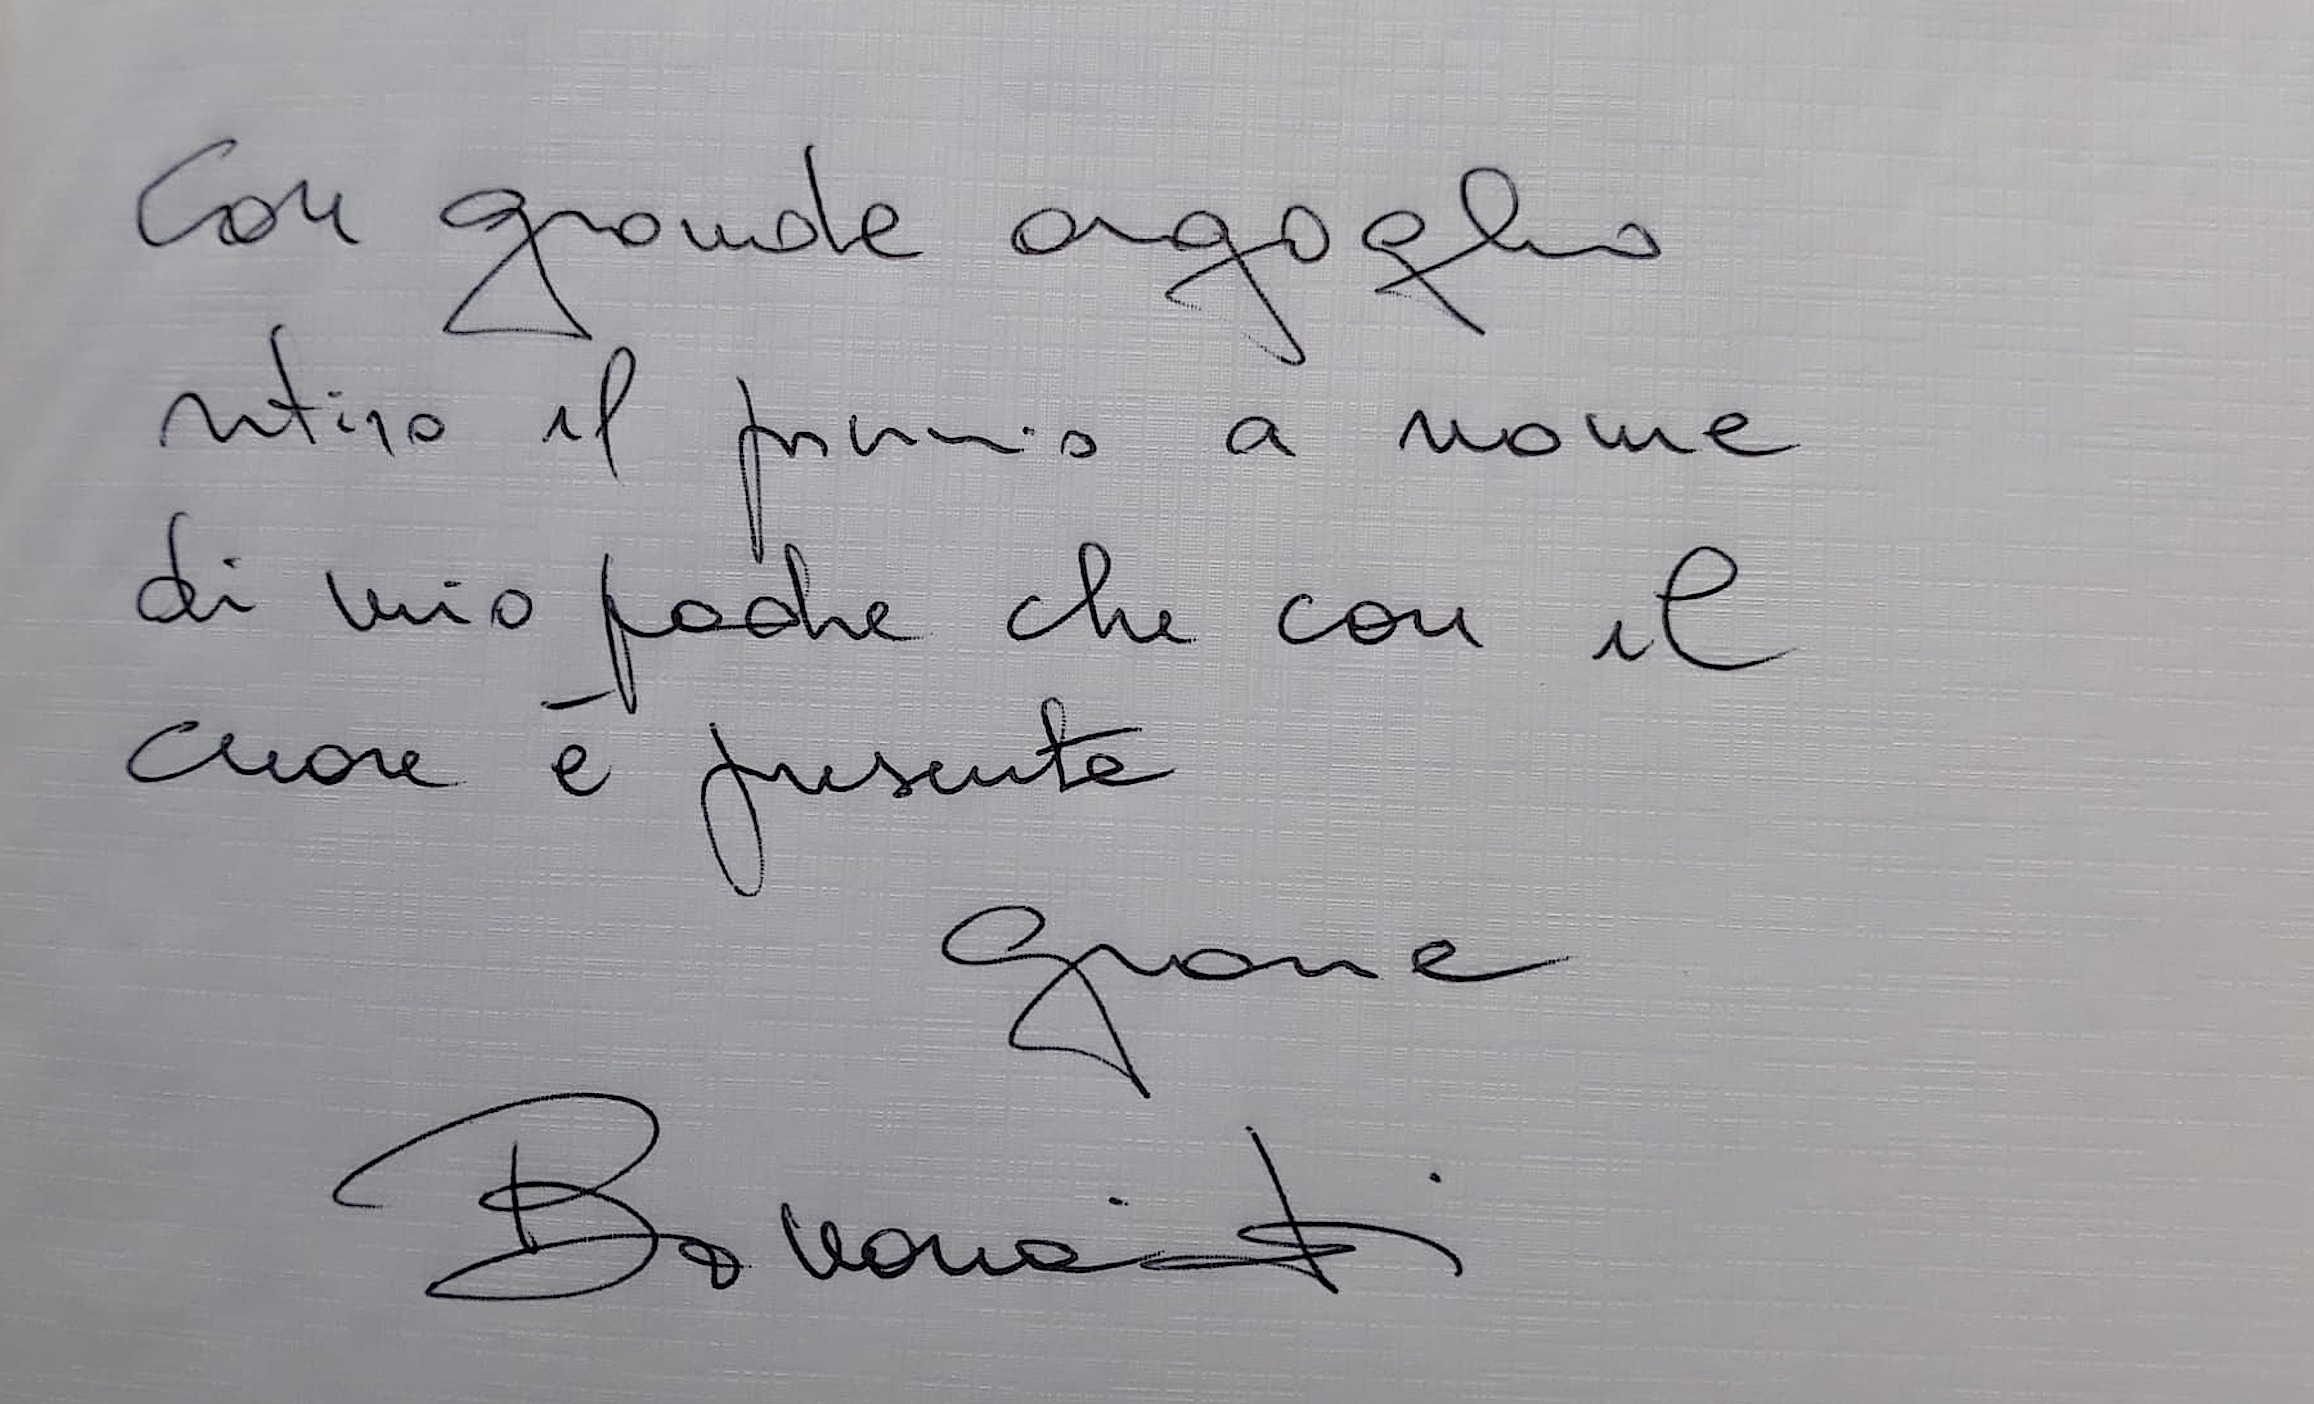 Con grande orgoglio
ritiro il premio a nome
di mio padre che con il
cuore è presente
Grazie